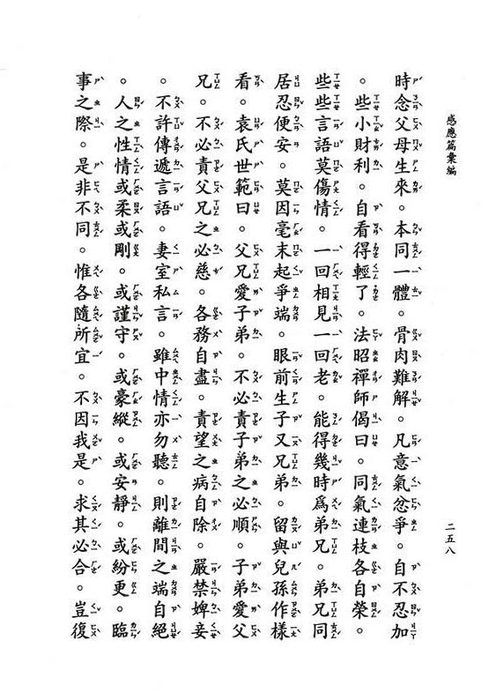 感應篇彙編
二五八
時念父母生來。本同一體。骨肉難解。凡意氣忿爭。自不忍加
。些小財利。自看得輕了。法昭禪師偈曰。同氣連枝各自榮。
些些言語莫傷情。一回相見一回老。能得幾時為弟兄。弟兄同
居忍便安。莫因毫末起爭端。眼前生子又兄弟。留與兒孫作樣
看。袁氏世範曰。父兄愛子弟。不必責子弟之必順。子弟愛父
兄。不必責父兄之必慈。各務自盡。責望之病自除。嚴禁婢妾
。不許傳遞言語。妻室私言。雖中情亦勿聽。則離間之端自絕
。人之性情或柔或剛。或謹守。或豪縱。或安靜。或紛更。臨
事之際。是非不同。惟各隨所宜。不因我是。求其必合。豈復